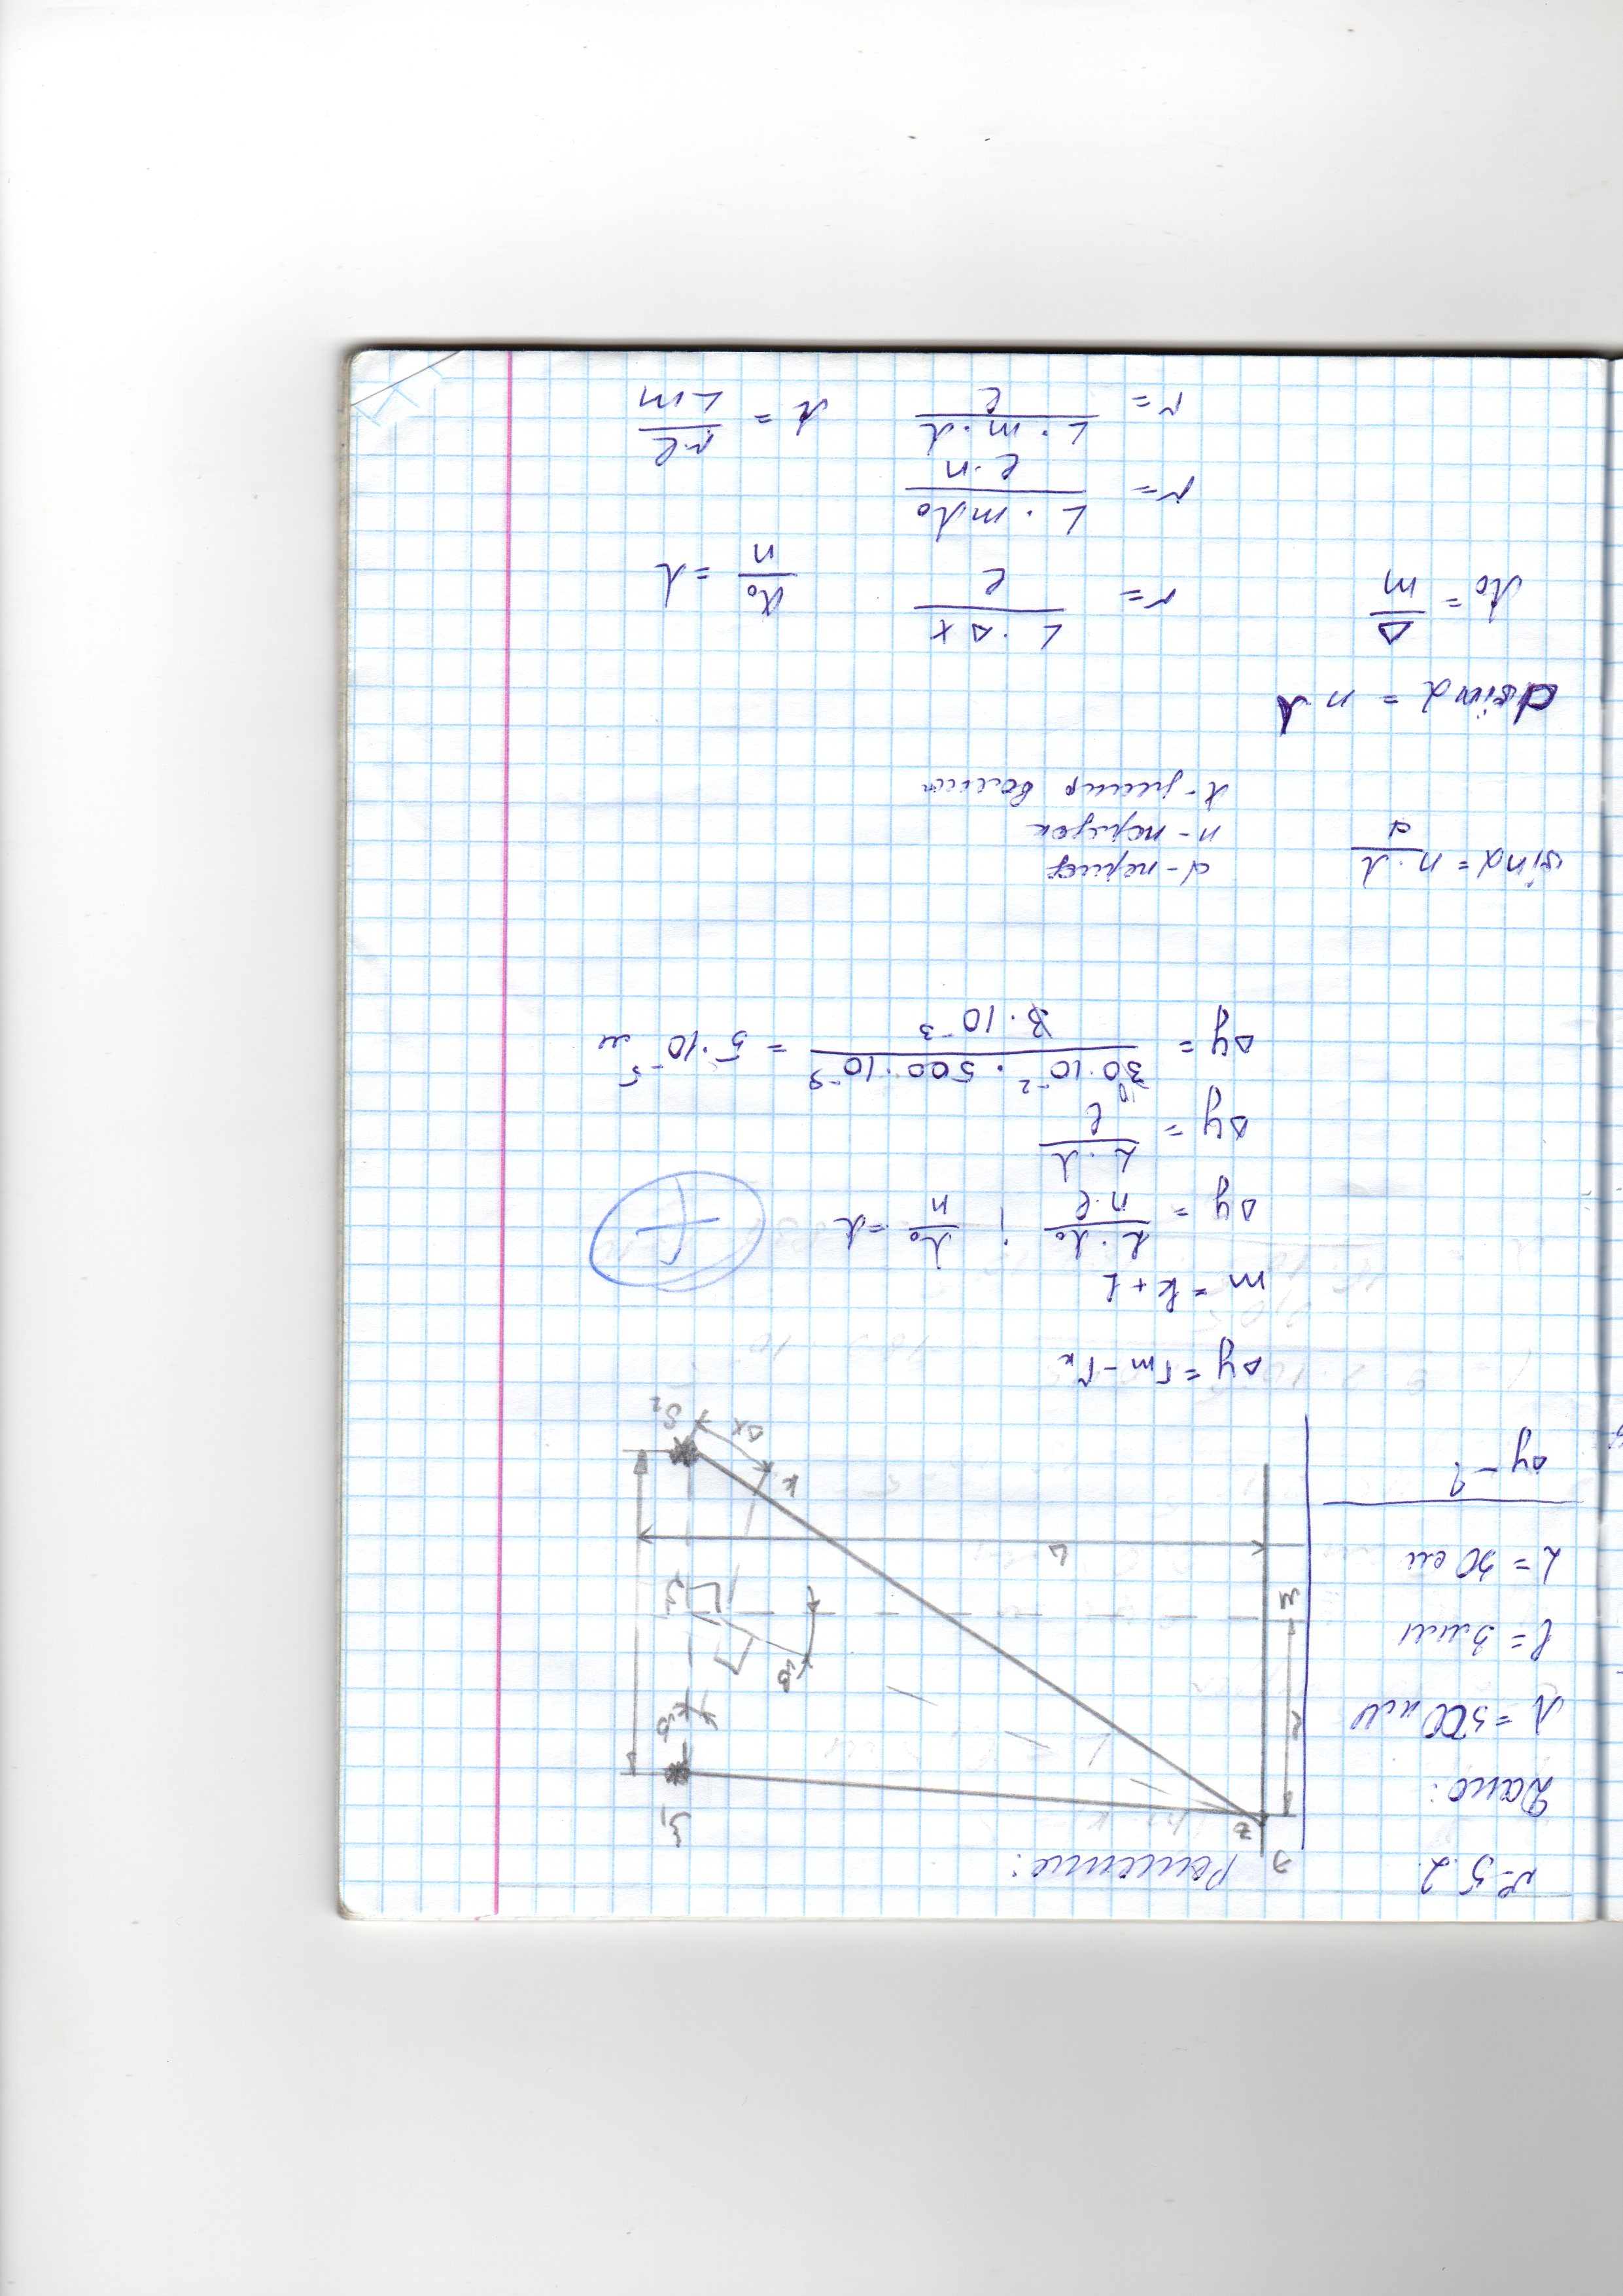 № 5.2.
Решение:
Дано:
λ = 500 нм
l = 3 мм
L = 30 см
Δy - ?
Э
z
S₁
r
β
β
M
S
L
k
Δx
S₂
Δy = rₘ - rₖ
m = k + 1
Δy = L · λ₀ / n · l ; λ₀ / n = λ
+
Δy = L · λ / l
Δy = 30 · 10⁻² · 500 · 10⁻⁹ / 3 · 10⁻³ = 5 · 10⁻⁵ м
sin α = n · λ / d
d - период
n - порядок
λ - длина волны
d sin α = n λ
λ₀ = Δ / m
r = L · Δx / l
λ₀ / n = λ
r = L · m λ₀ / l · n
r = L · m · λ / l
λ = r l / L m